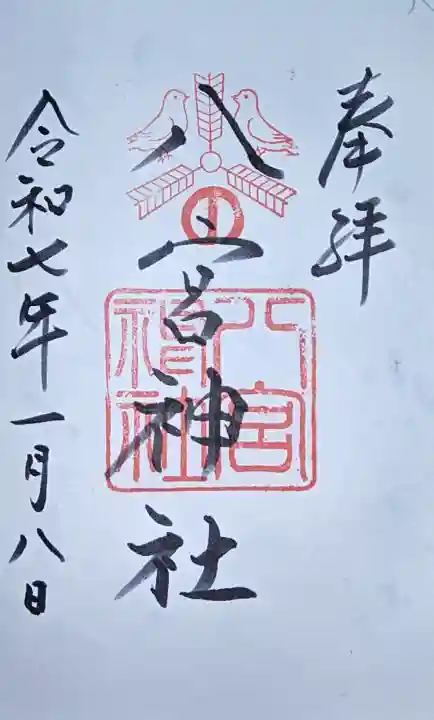 奉拝
八宮神社
八宮
神社
令和七年一月八日